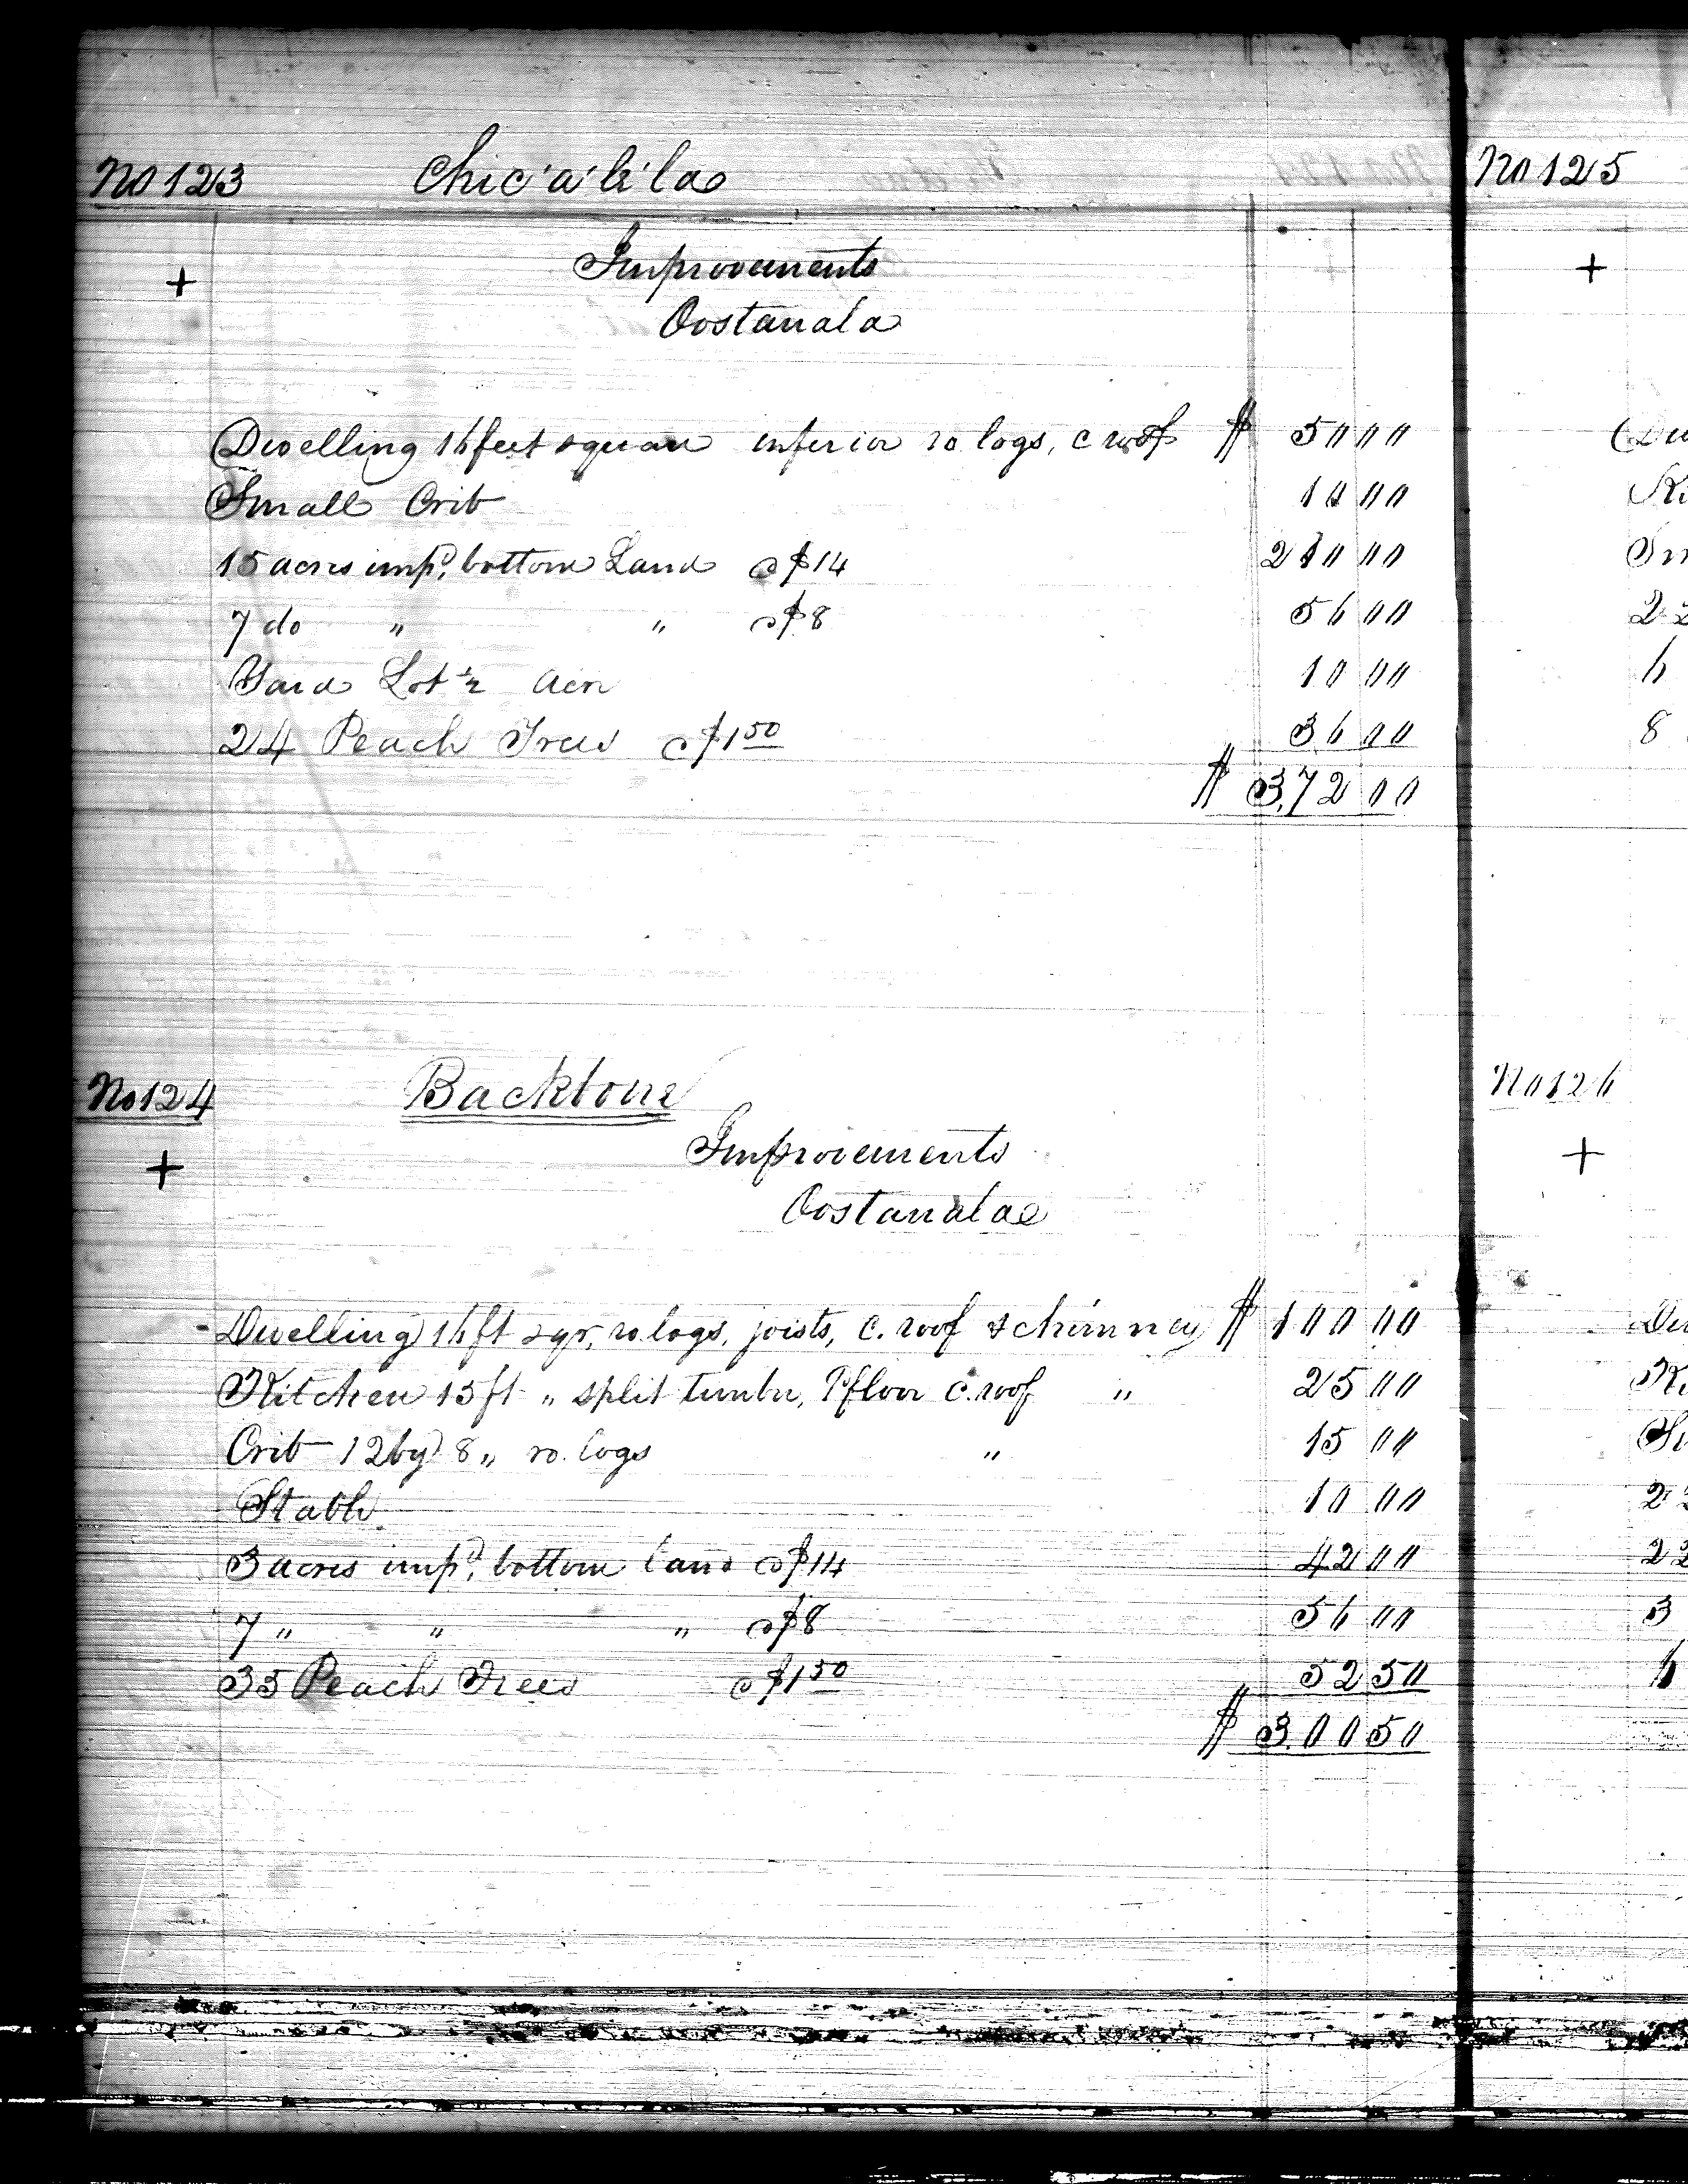 No 123 Chic'a'le'la
+ Improvements
Oostanala
Dwelling 16 feet square inferior ro logs, c roof $ 50 00
Small Crib 10 00
15 acres imp.d bottom Land @ $14 210 00
7 do " " @ $8 56 00
Yard Lot ½ Acre 10 00
24 Peach Trees @ $1 50 36 00
$ 372 00
No 124 Backbone
+ Improvements
Oostanala
Dwelling 16 ft sqr, ro. logs, joists, c. roof & chimney $ 100 00
Kitchen 15 ft " split timber, P floor c. roof " 25 00
Crib 12 by 8 " ro. logs " 15 00
Stable 10 00
3 acres imp.d bottom land @ $14 42 00
7 " " " @ $8 56 00
35 Peach Trees @ $1 50 52 50
$ 300 50
No 125
+
6
8
No 126
+
3
6